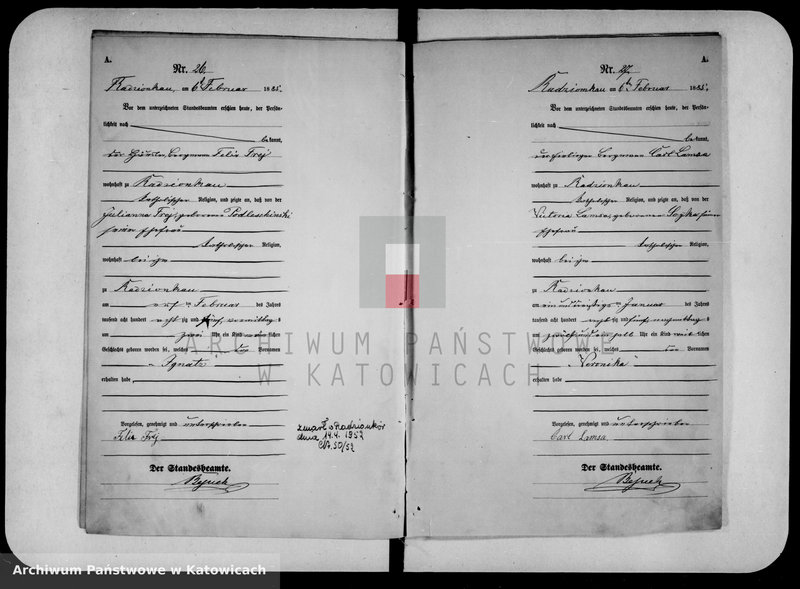 A.
Nr. 26.
Radzionkau, am 6ten Februar 1885.
Vor dem unterzeichneten Standesbeamten erschien heute, der Persön-
lichkeit nach
bekannt,
der Häusler, Bergmann Felix Froj
wohnhaft zu Radzionkau
katholischer Religion, und zeigte an, daß von der
Julianna Froj, geborenen Podleschinski
seiner Ehefrau
katholischer Religion,
wohnhaft bei ihm
zu Radzionkau
am Februar des Jahres
tausend acht hundert acht zig und fünf, vormittag s
um zwei Uhr ein Kind männlichen
Geschlechts geboren worden sei, welches den Vornamen
Ignatz
erhalten habe
Vorgelesen, genehmigt und unterschrieben
Felix Froj
Der Standesbeamte.
zmarł w Radzionkowie
dnia 14.4.1952
50/52
A.
Nr. 27.
Radzionkau am 6ten Februar 1885.
Vor dem unterzeichneten Standesbeamten erschien heute, der Persön-
lichkeit nach
bekannt,
Bergmann Carl Lamsa
wohnhaft zu Radzionkau
katholischer Religion, und zeigte an, daß von der
Lamsa, geborenen seiner
Ehefrau
katholischer Religion,
wohnhaft bei ihm
zu Radzionkau
am ein und dreißigsten Januar des Jahres
tausend acht hundert acht zig und fünf nachmittag s
um ein halb Uhr ein Kind weiblichen
Geschlechts geboren worden sei, welches den Vornamen
Veronika
erhalten habe
Vorgelesen, genehmigt und unterschrieben
Carl Lamsa
Der Standesbeamte.
ARCHIWUM PAŃSTWOWE
W KATOWICACH
Archiwum Państwowe w Katowicach